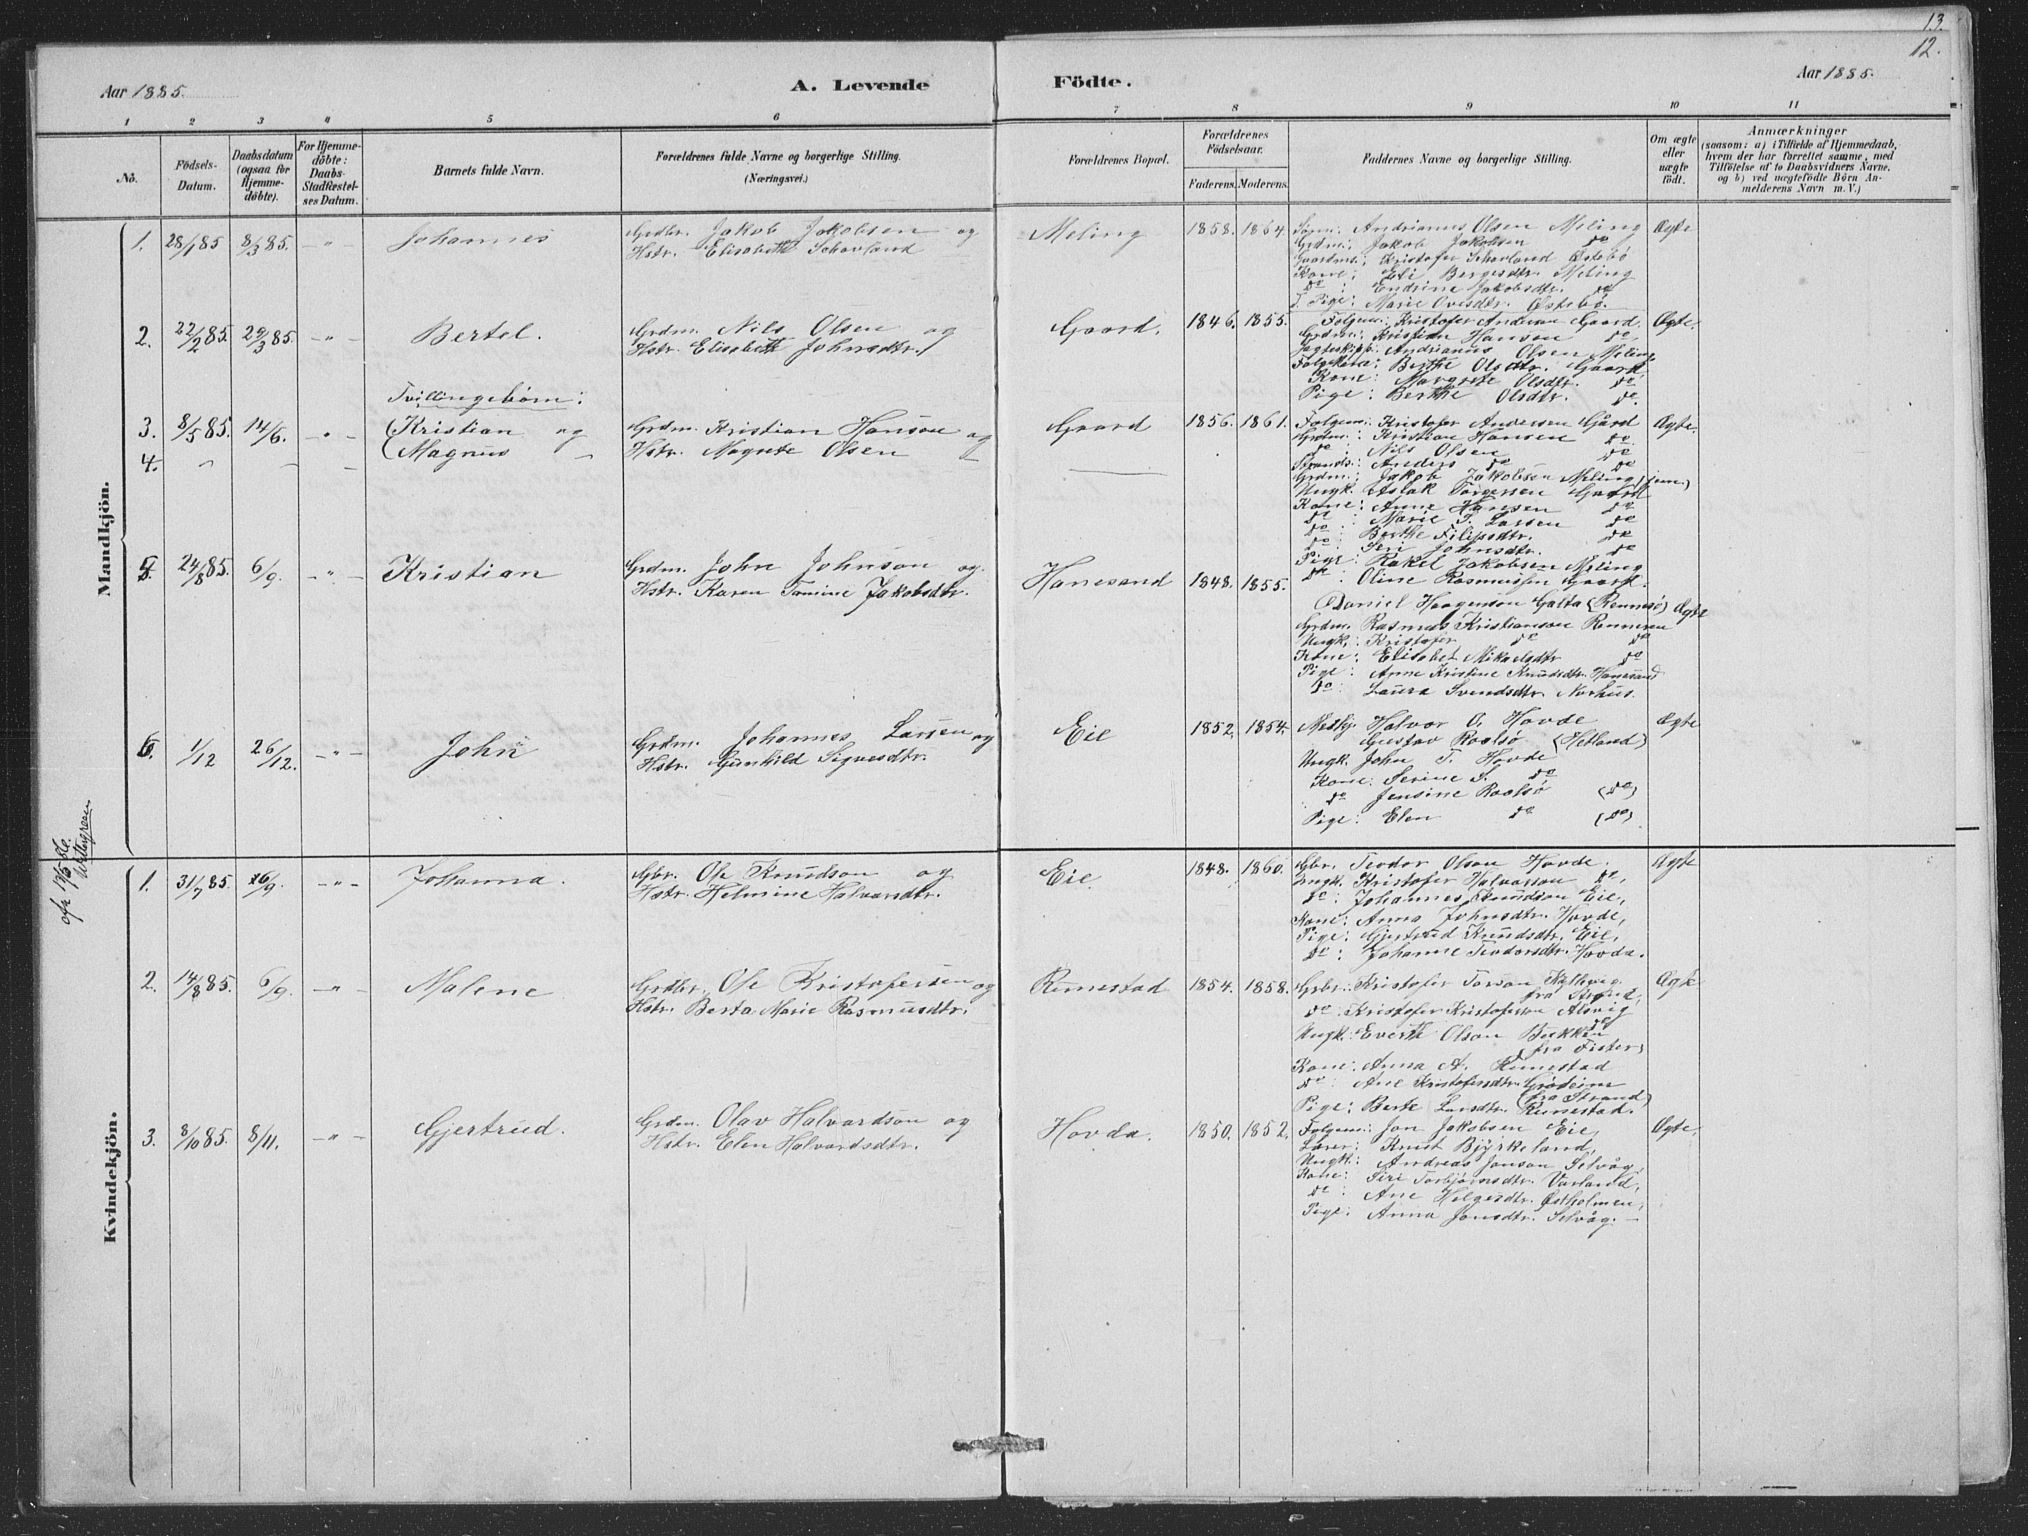 13.
12.
Aar 1885.
A. Levende
Födte.
Aar 1885.
1 2 3 4 5 6 7 8 9 10 11
No.
Födsels-
Datum.
Daabsdatum
(ogsaa for
Hjemme-
döbte).
For Hjemme-
döbte:
Daabs-
Stadfæstel-
ses Datum.
Barnets fulde Navn.
Forældrenes fulde Navne og borgerlige Stilling.
(Næringsvei.)
Forældrenes Bopæl.
Forældrenes
Födselsaar.
Faderens. Moderens.
Faddernes Navne og borgerlige Stilling.
Om ægte
eller
uægte
födt.
Anmærkninger
(saasom: a) i Tilfælde af Hjemmedaab,
hvem der har forrettet samme, med
Tilföielse af to Daabsvidners Navne,
og b) ved uægtefödte Börn An-
melderens Navn m. V.)
Mandkjön.
1. 28/1 85 8/3 85. – " – Johannes
Grdbr. Jakob Jakobsen og
Hstr. Elisabeth Schovland
Meling 1858. 1864.
Andrianus Olsen Meling
Grdm: Jakob Jakobsen do
Gaardm: Kristofer Schovland Østebø
Kone: Eli Bergesdtr. Meling
do: Endrine Jakobsdtr. do
Pige: Marie Ovesdtr. Østebø.
Ægte
2. 22/2 85. 29/3 85. – " – Bertel.
Grdm. Nils Olsen og
Hstr. Elisabeth Johnsdtr.
Gaard. 1846. 1855.
Folgem: Kristofer Andersen Gaard.
Grdm: Kristian Hansen do
Jagteskipp. Andrianus Olsen Meling
Folgekone: Berthe Olsdtr. Gaard
Kone: Margrete Olsdtr. do
Pige: Berthe Olsdtr. do
Ægte.
Tvillingebørn:
3. 8/5 85. 14/6. – " – Kristian og
4. " – – Magnus –
Grdm. Kristian Hansen og
Hstr. Magrete Olsen –
Gaard 1856. 1861.
Folgem: Kristofer Andersen Gård
Grdm: Kristian Hansen do
do: Nils Olsen do
Strands: Anders do do
Grdm: Jakob Jakobsen Meling, jun.)
Ungk. Aslak Torgersen Gaard
Kone: Anne Hansen do
do: Marie T. Larsen do
do: Berthe Filipsdtr. do
do: Siri Johnsdtr. do
Pige: Rakel Jakobsen Meling
do: Oline Rasmussen Gaard.
Ægte.
5. 24/8 85. 6/9. – " – Kristian
Grdm. John Johnson og
Hstr. Karen Tomine Jakobsdtr.
Hanesand 1848. 1855.
Daniel Haagenson Galta (Rennesø)
Grdm. Rasmus Kristianson Rennesøe
Ungk: Kristofer do do
Kone: Elisabet Mikaelsdtr do
Pige: Anne Kristine Knudsdtr. Hanesand
do: Laura Svendsdtr. Norhus.
Ægte
6. 1/12 26/12. – " – John
Grdm. Johannes Larsen og
Hstr. Gunhild Sigvesdtr.
Eie 1852. 1854.
Medhj. Halvor O. Hovde
Gustav Roalsø (Hetland)
Ungk. John T. Hovde
Kone: Serine S. do
do Jensine Roalsø (do)
Pige: Elen do (do)
Ægte
Kvindekjön.
1. 31/7 85. 26/9. – " – Johanna.
Gbr. Ole Knudson og
Hstr. Helmine Halvorsdtr.
Eie 1848. 1860.
Gbr. Teodor Olson Hovde.
Ungk. Kristofer Halvorson do,
do: Johannes Knudson Eie,
Kone: Anna Johnsdtr. Hovde,
Pige: Gjertrud Knudsdtr. Eie,
do: Johanne Teodorsdtr. Hovda.
Ægte
2. 14/8 85. 6/9. – " – Malene
Grdbr. Ole Kristofersen og
Hstr. Berta Marie Rasmusdtr.
Rennestad 1854. 1858.
Grbr.: Kristofer Torson
fra Strand,
do: Kristofer Kristoferson Alsvig
do
Ungk: Everth Olson Bekken
fra Fister,
Kone: Anna A. Runestad
do: Ane Kristofersdtr. Grødeim
(fra Strand)
Pige: Berte Larsdtr. Runestad.
Ægte
3. 8/10 85. 8/11. – " – Gjertrud.
Grdm. Olav Halvardson og
Hstr. Elen Halvardsdtr.
Hovda. 1850. 1852.
Folgem: Jon Jakobsen Eie,
Lærer: Knut Bjyrkeland,
Ungk: Andreas Jonson Selvåg,
Kone: Siri Torbjørnsdtr. Varland,
do: Ane Helgesdtr. Østholmen,
Pige: Anna Jonsdtr. Selvåg. –
Ægte.